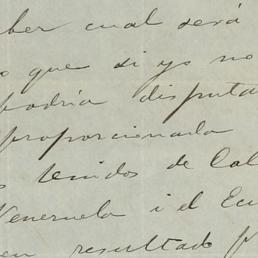 ber cual será
o que si yo no
podría disputa
proporcionada
s tenidos de Col
Venezuela i el Ecu
en resultado p